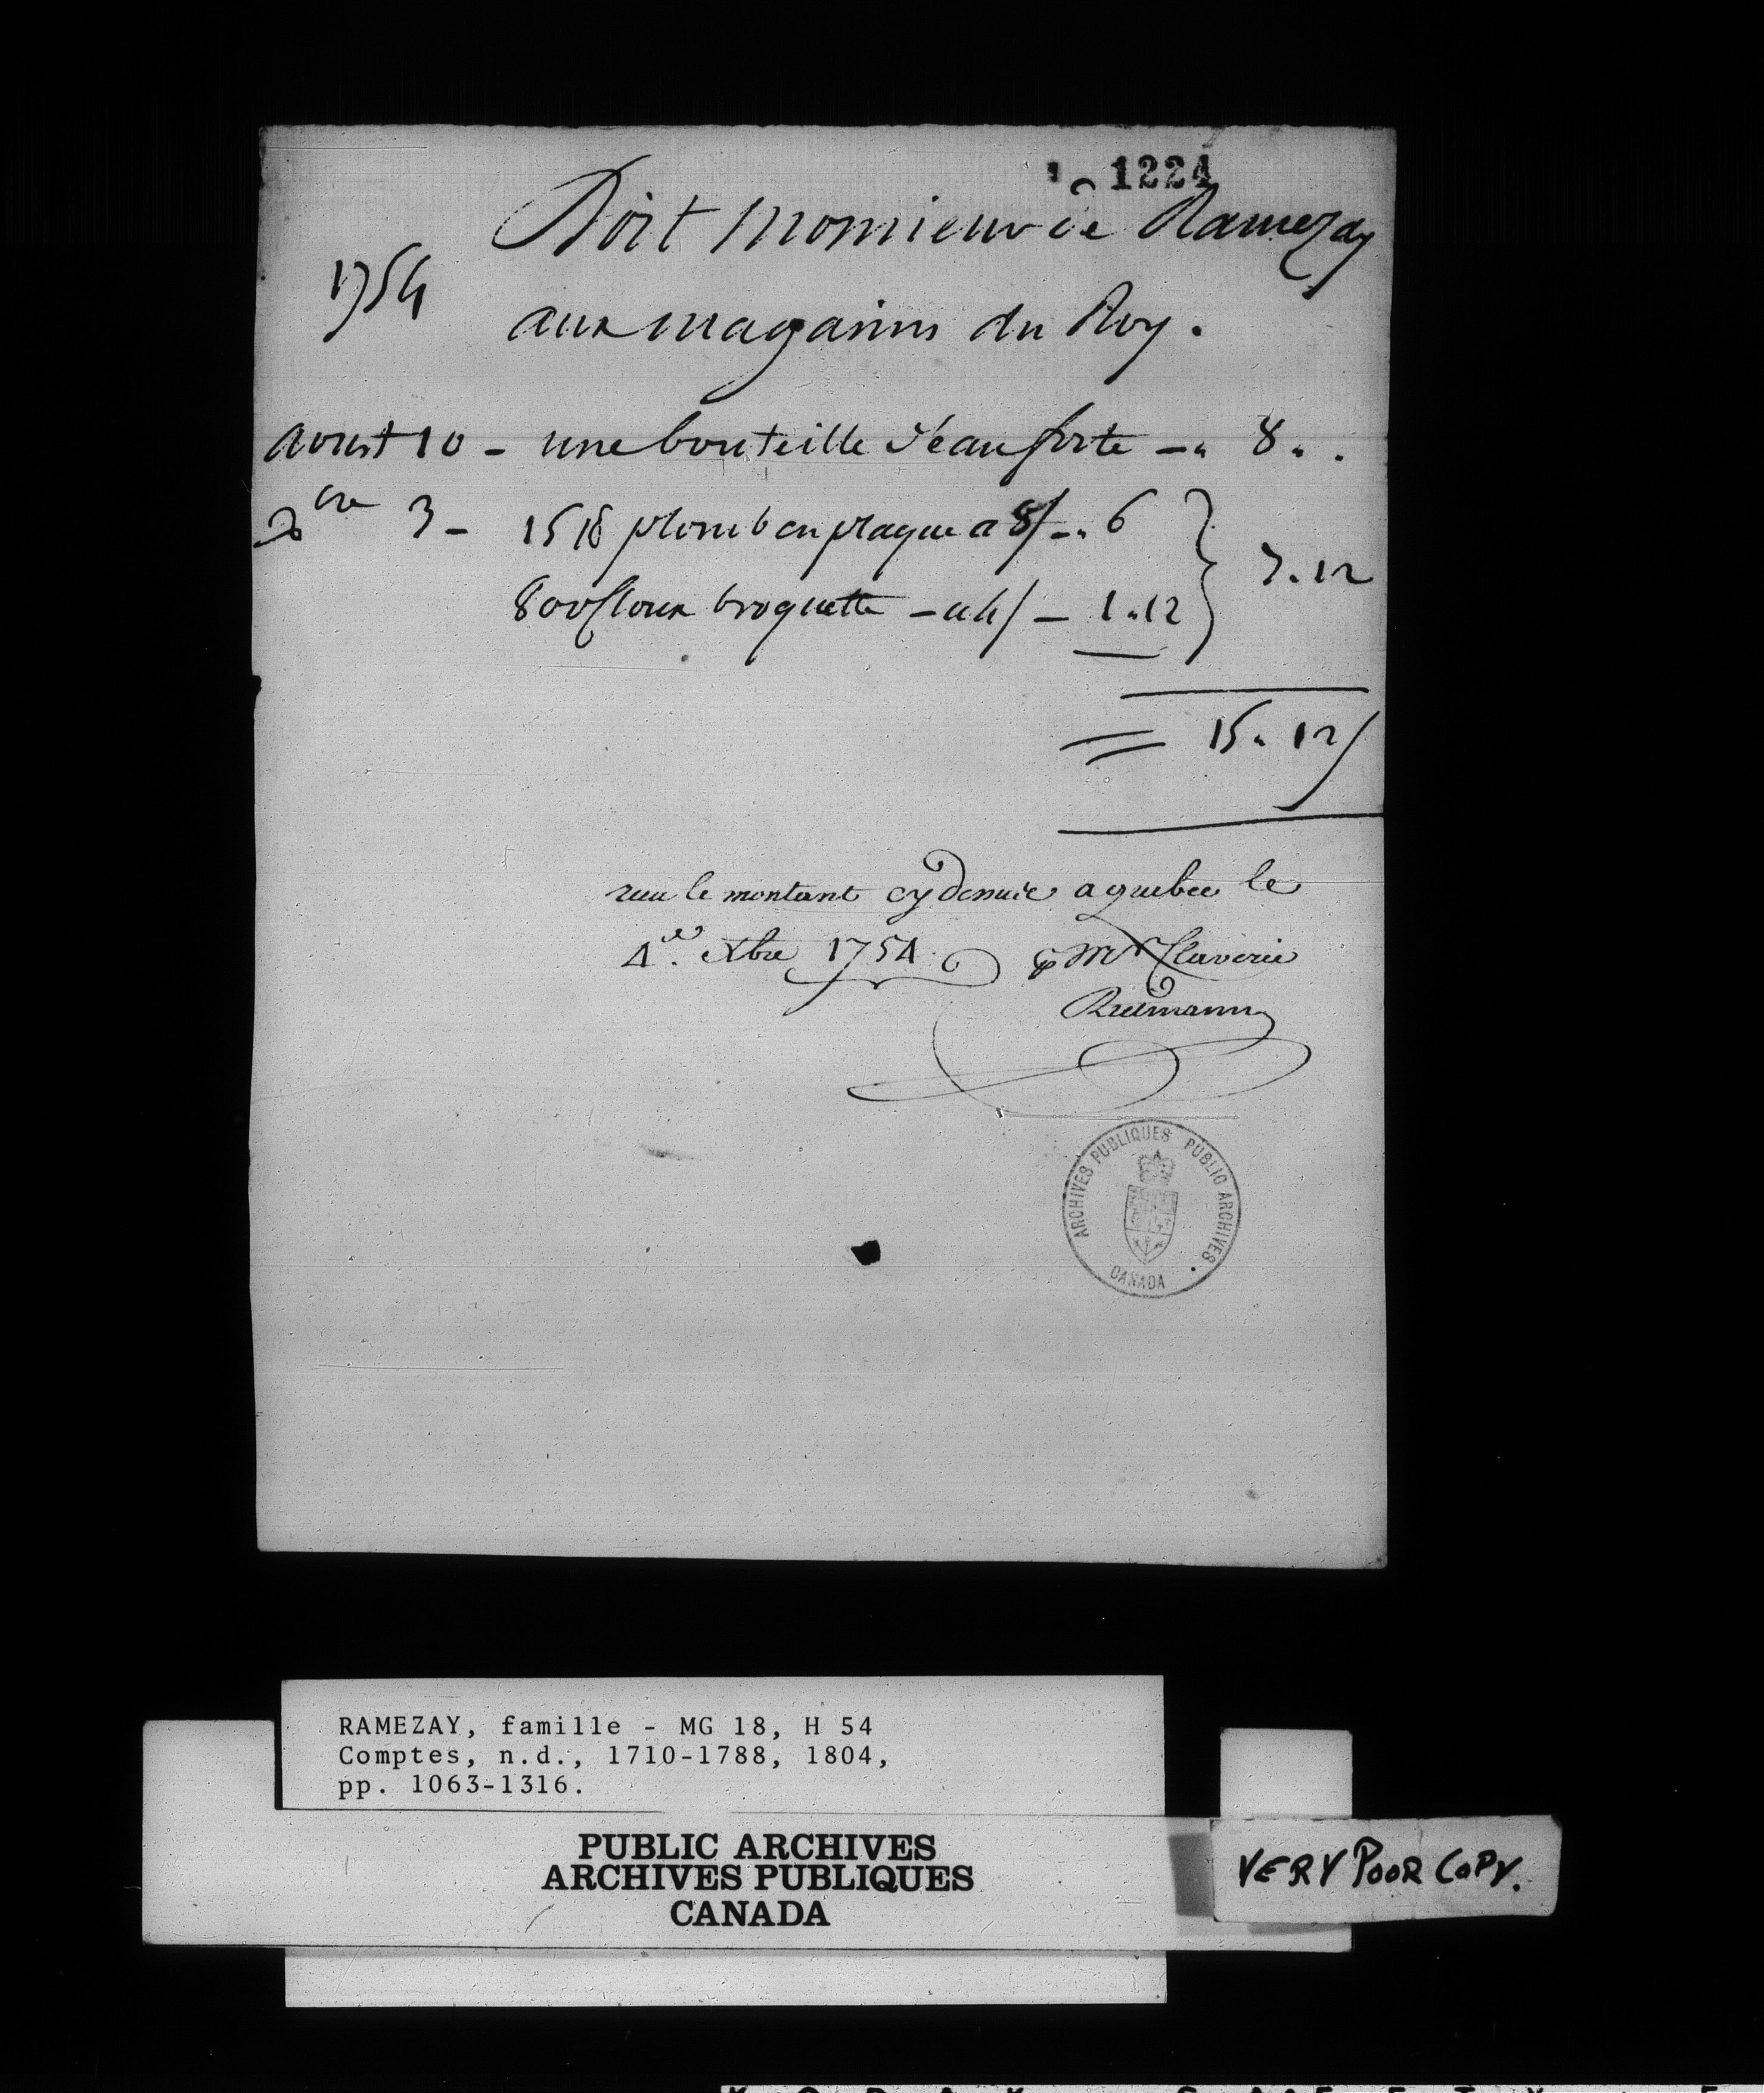 1224
Doit Monsieur de Ramezay
1754
aux magasins du Roy.
Aoust 10 - une bouteille d'eau forte - " 8 " .
xbre 3 - 15 lb plomb en plaque a 8/ - " 6
800 Cloux broquette - a 4/ - 1 " 12
7 . 12
15 " 12/
receu le montant cy dessus a quebec le
4e. Xbre 1754 p Mr Claverie
ARCHIVES PUBLIQUES PUBLIC ARCHIVES
CANADA
RAMEZAY, famille - MG 18, H 54
Comptes, n.d., 1710-1788, 1804,
pp. 1063-1316.
PUBLIC ARCHIVES
ARCHIVES PUBLIQUES
CANADA
VERY POOR COPY.